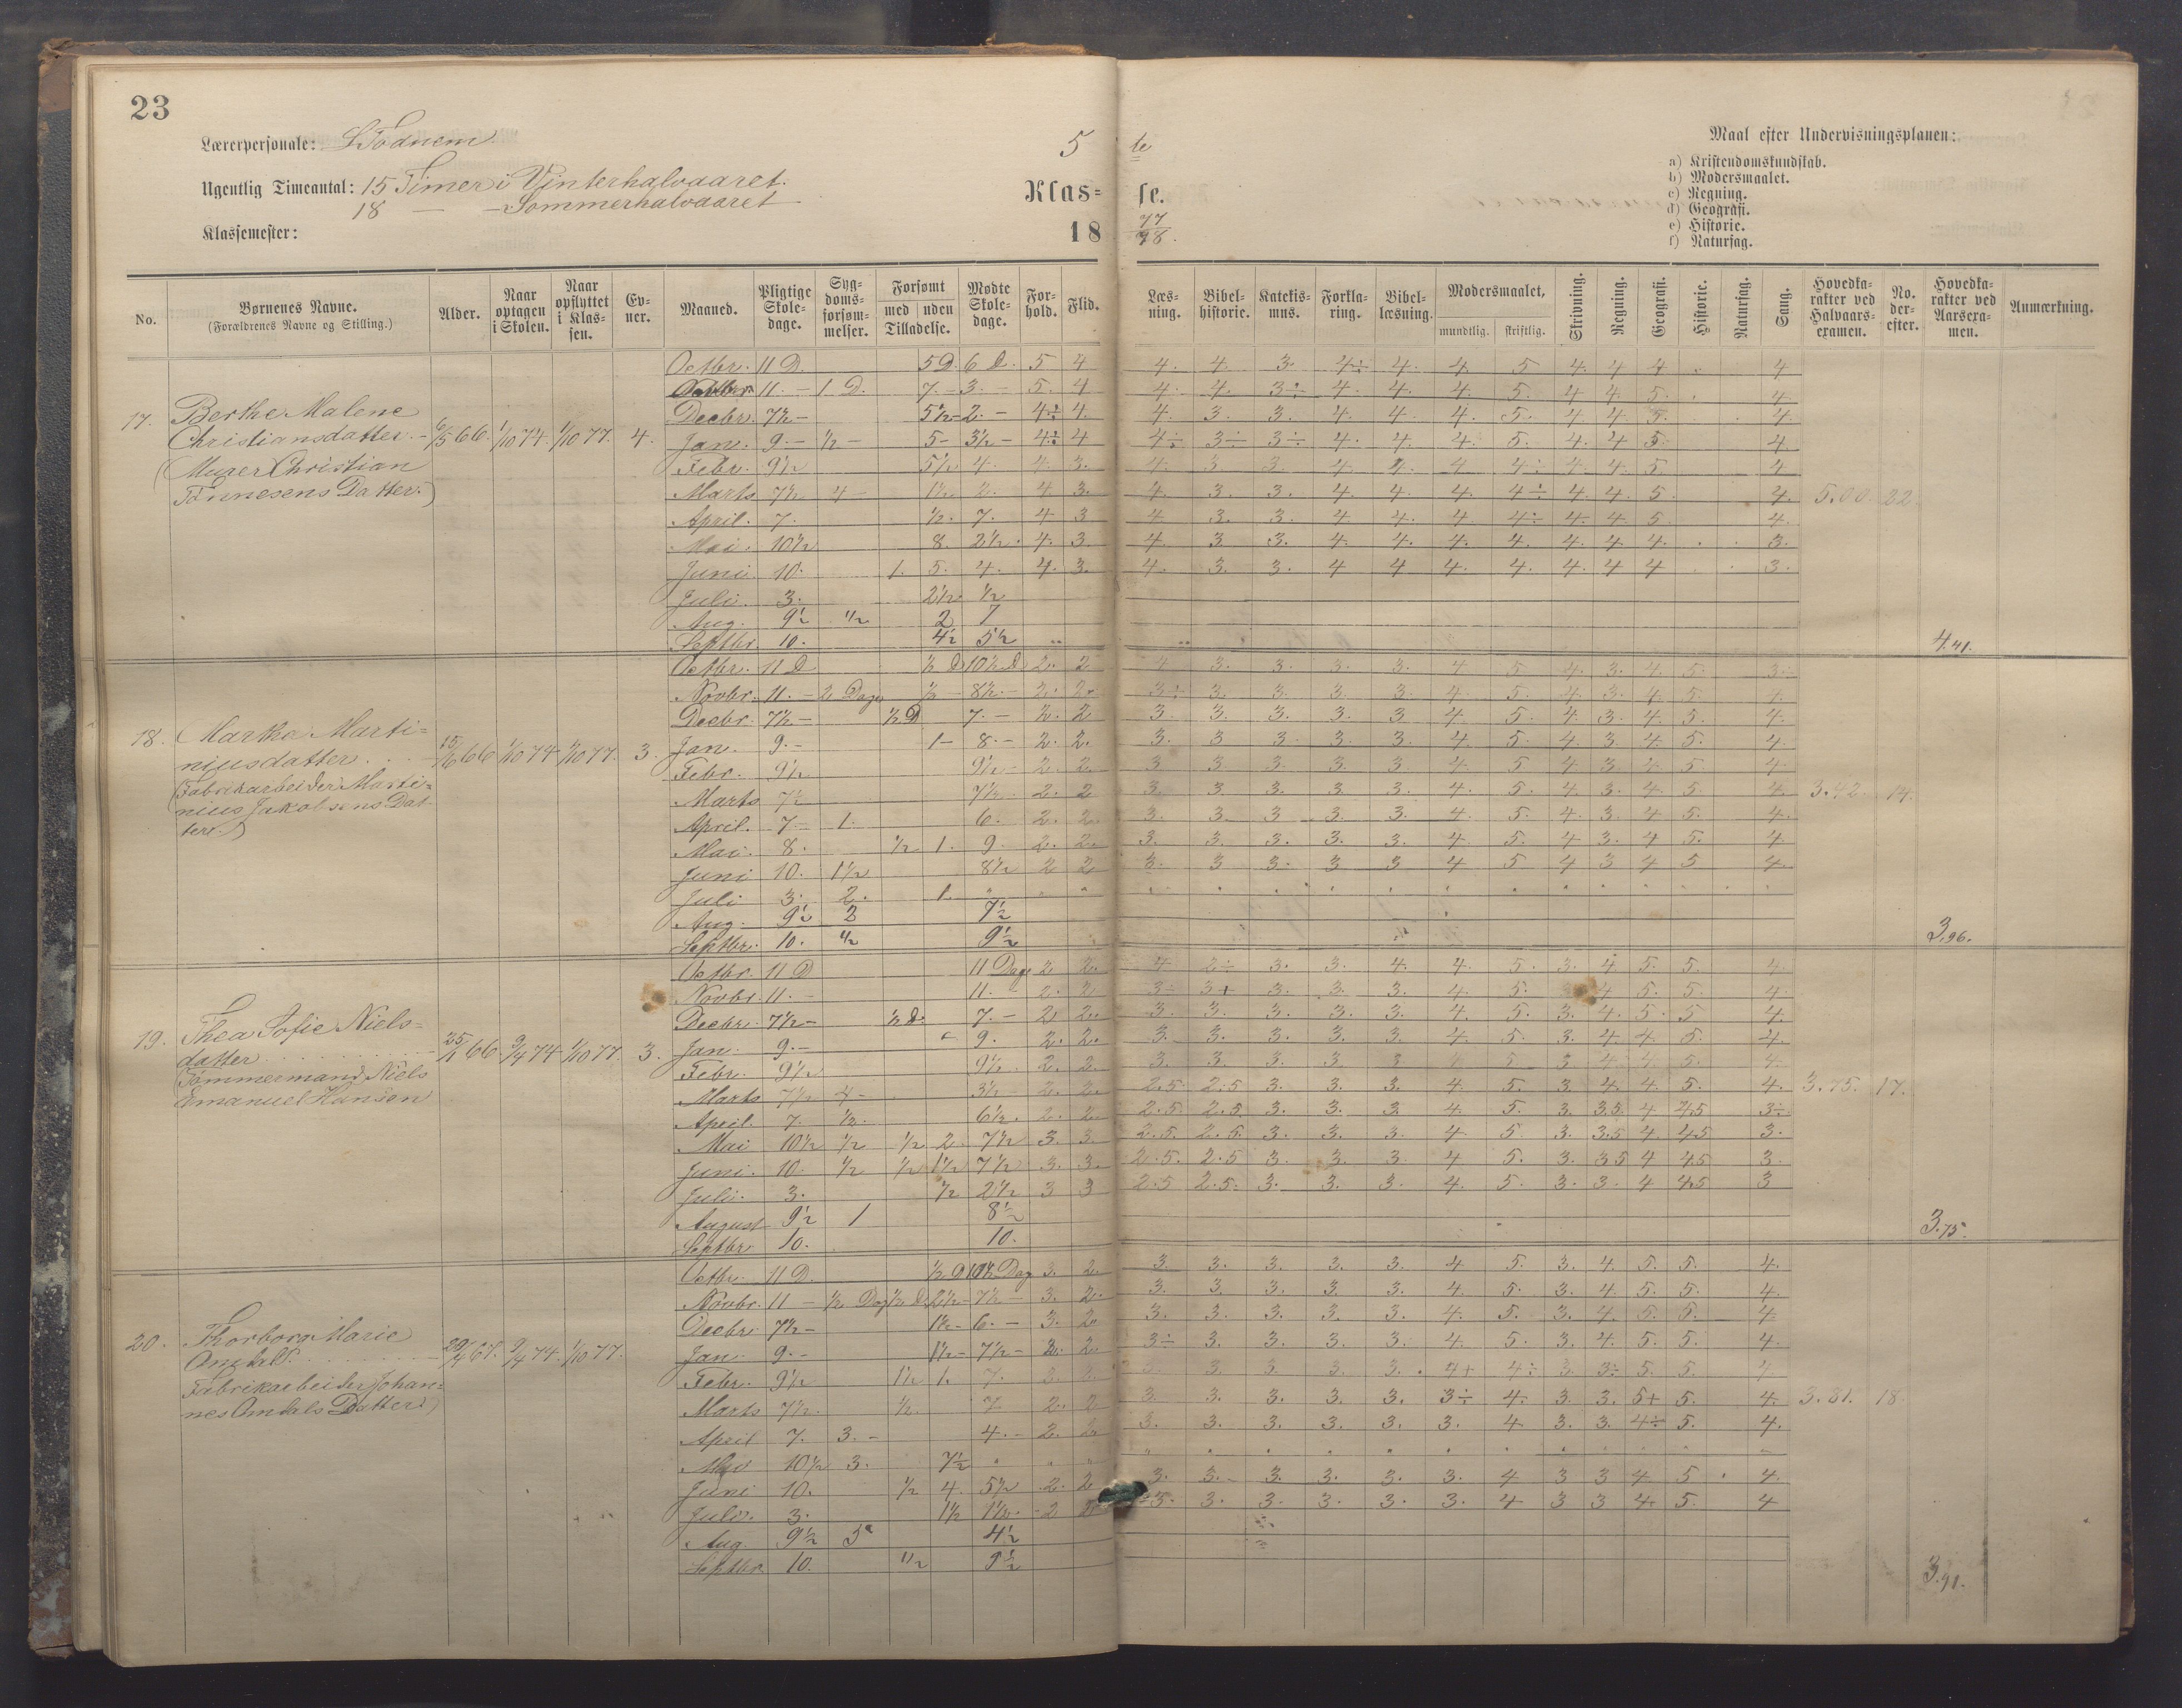 23
Lærerpersonale: S Tödnem
5 te
Maal efter Undervisningsplanen:
Ugentlig Timeantal: 15 Timer i Vinterhalvaaret.
18 — — Sommerhalvaaret
Klas= se.
a) Kristendomskundskab.
b) Modersmaalet.
c) Regning.
d) Geografi.
e) Historie.
f) Naturfag.
Klassemester:
18 77/78.
No. Børnenes Navne. (Forældrenes Navne og Stilling.) Alder. Naar optagen i Skolen. Naar opflyttet i Klassen. Evner. Maaned. Pligtige Skoledage. Sygdomsforsømmelser. Forsømt med uden Tilladelse. Mødte Skoledage. Forhold. Flid. Læsning. Bibelhistorie. Katekismus. Forklaring. Bibellæsning. Modersmaalet, mundtlig. skriftlig. Skrivning. Regning. Geografi. Historie. Naturfag. Sang. Hovedkarakter ved Halvaarsexamen. No. derefter. Hovedkarakter ved Aarsexamen. Anmærkning.
17. Berthe Malene
Christiansdatter. 6/5 66. 1/10 74. 1/10 77. 4.
(Murer Christian
Tönnesens Datter.)
Octbr. 11 D. 5 D. 6 D. 5 4 4. 4. 3 4÷ 4. 4. 5 4. 4 4 4
11. — 1 D. 7. — 3. — 5. 4 4. 4. 3÷ 4. 4. 4. 5. 4 4. 5. 4
Decbr. 7½ — 5½ — 2. — 4÷ 4. 4. 3. 3. 4. 4. 4. 5. 4 4. 5. 4.
Jan. 9. — ½ — 5 — 3½ — 4÷ 4 4÷ 3÷ 3÷ 4. 4. 4. 5. 4. 4 5. 4
Febr. 9½ 5½ 4. 4. 3. 4. 3 3. 4 4. 4 4÷ 4. 4. 5 4
Marts 7½ 4 — 1½ 2. 4 3. 4. 3. 3. 4. 4. 4. 4÷ 4. 4. 5 4. 5.00. 22.
April. 7. ½. 7. 4 3 4 3. 3. 4 4. 4 4÷ 4. 4 5 4.
Mai. 10½ 8. 2½. 4. 3 4. 3 3. 4. 4. 4. 4. 4. 4. 4. 3.
Juni. 10. 1. 5. 4. 4. 3. 4. 3. 3. 4 4 4. 4. 4. 4 4 3.
Juli. 3. 2½ ½
Aug. 9½ ½ 2 7
Septbr. 10. 4½ 5½ 4.41.
18. Martha Marti=
niusdatter 15/6 66 1/10 74 1/10 77. 3.
(Fabrikarbeider Marti=
nius Jakobsens Dat
ter.)
Octbr. 11 D ½ D 10½ D 2. 2 4 3. 3. 3. 3. 4 5 4. 3. 4. 5. 3÷
Novbr. 11. — 2 Dage ½ — 8½. — 2. 2. 3÷ 3. 3. 3. 3. 4. 5. 4. 3. 4. 5. 4.
Decbr. 7½ — ½ D 7. — 2. 2 3. 3. 3. 3. 3 4 5. 4. 3. 4. 5. 4.
Jan. 9. — 1 — 8. — 2. 2. 3. 3 3. 3. 3. 4. 5. 4 3. 4. 5. 4.
Febr. 9½ 9½ — 2. 2. 3 3 3. 3. 3. 4 5 4 3 4 5 4.
Marts 7½ 7½. 2. 2 3. 3 3. 3. 3. 4. 5. 4. 3. 4. 5. 4. 3.42. 14.
April. 7 — 1. 6. 2. 2. 3. 3. 3 3. 3. 4. 5. 4. 3. 4 5. 4.
Mai. 8. ½ 1. 9. 2. 2. 3. 3. 3. 3. 3. 4 5. 4 3. 4 5. 4
Juni 10. 1½ 8½ 2 2 3. 3 3. 3 3 4 5 4 3 4 5 4.
Juli 3. 2. 1.
Aug. 9½ 2 7½
Septbr. 10. ½ 9½ 3.96.
19. Thea Sofie Niels=
datter 25/1 66. 9/4 74 1/10 77. 3.
(Tömmermand Niels
Emanuel Hansen
Octbr. 11 D 11 Dage 2 2. 4 2÷ 3. 3. 4. 4. 5. 3. 4 5. 5. 4.
Novbr. 11. — 11. — 2. 2 3÷ 3+ 3. 3. 3. 4. 5. 4 5. 5. 4.
Decbr. 7½ — ½ D. 7. — 2. 2. 3. 3. 3. 3. 3. 4 5. 3. 4. 5. 5 4
Jan. 9. — 9. 2. 2. 3. 3. 3. 3. 3. 4. 5. 3. 4 4 5. 4.
Febr. 9½ 9½. 2. 2. 3. 3. 3. 3. 3. 5 3 4 4. 5. 4.
Marts 7½ 4 — 3½ 2. 2. 2.5 2.5 3. 3. 3. 4. 5. 3. 4. 4. 5. 4. 3.75. 17.
April. 7. ½. 6½. 2. 2. 2.5. 2.5. 3. 3. 3. 4 5. 3. 3.5. 4 4.5 3÷
Mai 10½ ½ ½ 2. 7½ 3. 3. 2.5. 2.5. 3. 3. 3. 4 5 3. 3.5 4. 4.5 3.
Juni. 10. ½ ½ 1½ 7½ 3. 3. 2.5. 2.5 3. 3. 3. 4 5. 3. 3.5 4 4.5 3.
Juli. 3. ½ 2½ 3 3 2.5 2.5. 3. 3. 3. 4. 5. 3. 3. 4 4.5 3
August 9½ 1 8½
Septbr 10. 10. 3.75.
20. Thorborg Marie
Omdal. 29/4 67. 9/4 74. 1/10 77.
Fabrikarbeider Johan=
nes Omdals Datter)
Octbr. 11 D. ½ D 10½ Dag 3. 2. 3. 3. 3. 3. 3. 4 5. 3. 4. 5. 5. 4.
Novbr. 11 — ½ Dag ½ D 2½ — 7½ — 3. 2. 3. 3. 3. 3. 3. 4. 5. 3. 4. 5. 5. 4.
Decbr. 7½ — 1½ — 6. — 3. 2. 3. 3. 3. 3. 3. 4. 5. 3. 4. 5. 5. 4
Jan. 9. — 1½ — 7½ — 3. 2. 3÷ 3. 3. 3. 3. 4. 5. 3. 4. 5. 5. 4.
Febr. 9½ 1½ 1. 7. 3. 2. 3. 3. 3. 3. 3. 4+ 4÷ 3. 3÷ 5. 5. 4
Marts 7½. ½. 7 2. 2 3. 3. 3. 3. 3. 3÷ 4. 3. 3. 5+ 5. 4. 3.81. 18.
April 7. 3. — 4. — 2. 2. 3. 3. 3. 3. 3. 3. 4 3. 3. 4÷ 5. 4.
Mai 10½ 3. 7½
Juni 10. ½ 4. 5½ 2. 2 3. 3. 3. 3. 3. 3. 4 3 3 4 5 4.
Juli. 3. 1½ 1½. 2 2 3. 3. 3. 3. 3. 4 3 3 4 5. 4
Aug. 9½ 5 4½
Septbr. 10. ½ 9½ 3.91.